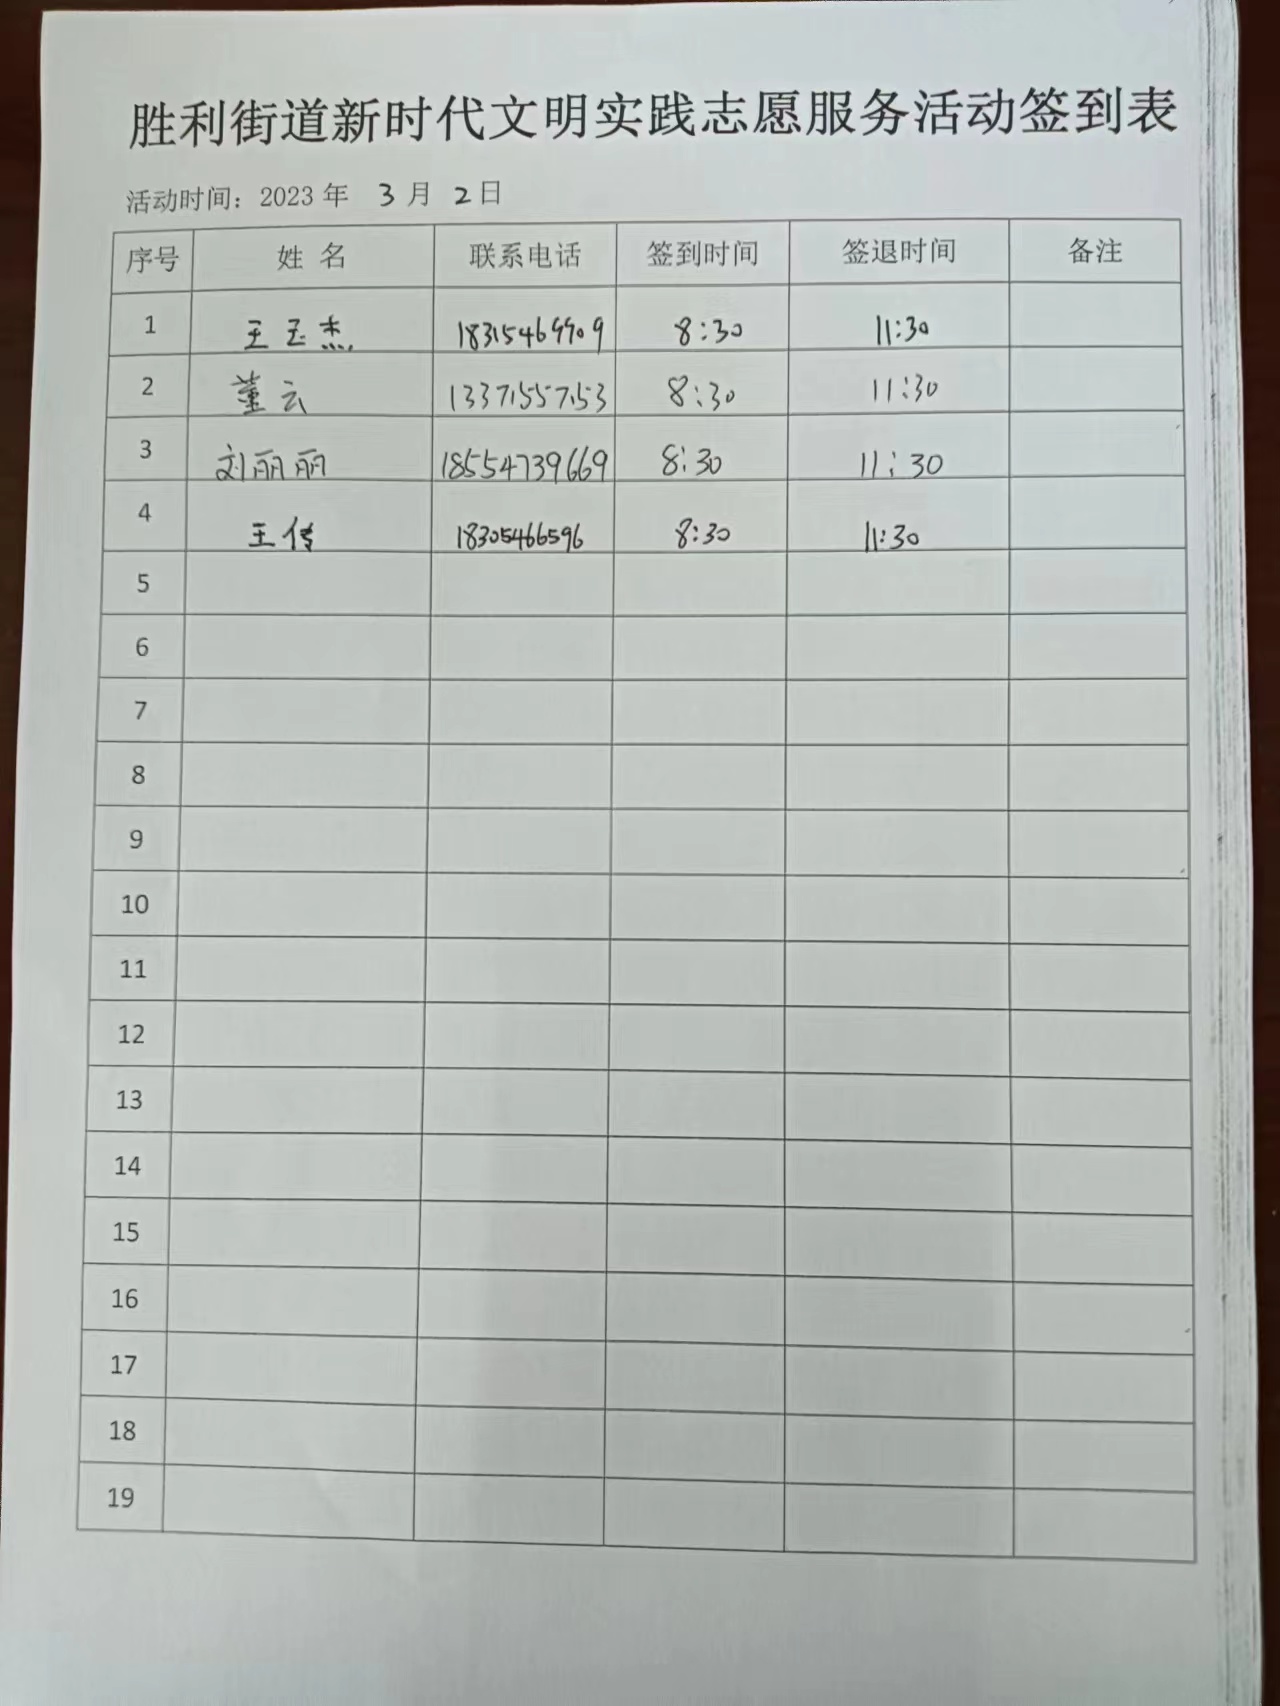 胜利街道新时代文明实践志愿服务活动签到表
活动时间：2023 年 3 月 2 日
序号 姓 名 联系电话 签到时间 签退时间 备注
1 王玉杰 8:30 11:30
2 董云 13371557153 8:30 11:30
3 刘丽丽 18554739669 8:30 11:30
4 王传 18305466596 8:30 11:30
5
6
7
8
9
10
11
12
13
14
15
16
17
18
19